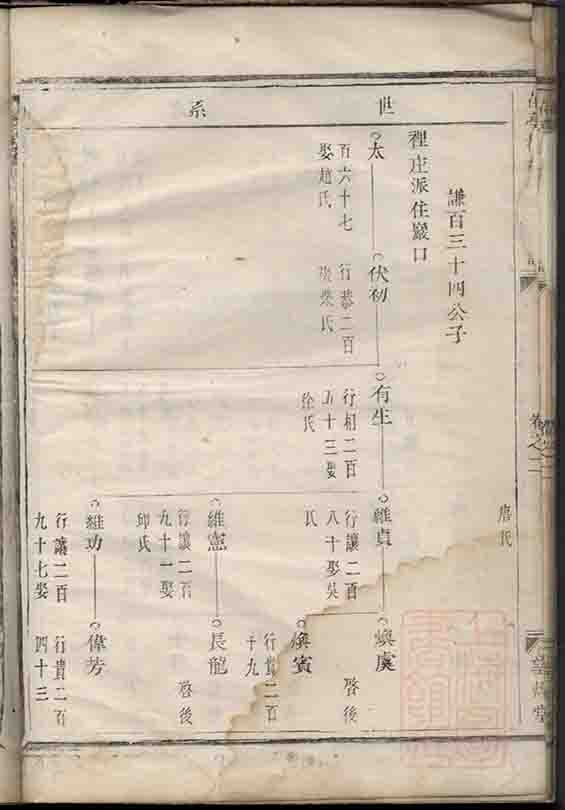 世系
唐氏
謙百三十四公子
裡庄派住巖口
太
百六十七
娶趙氏
伏初
行恭二百
柴氏
有生
行相二百
五十三娶
徐氏
維貞
行讓二百
八十娶吳
氏
煥虞
啓後
煥賓
行貴二百
十九
維憲
行讓二百
九十一娶
邱氏
長龍
啓後
維功
行讓二百
九十七娶
偉芳
行貴二百
四十三
卷之二
堂